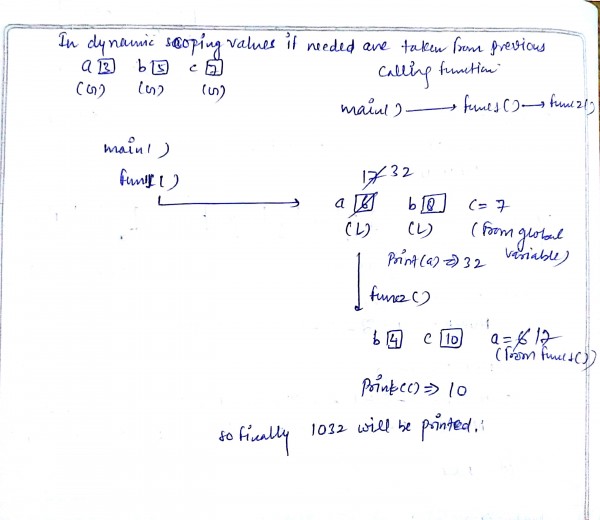 In dynamic scoping values if needed are taken from previous
calling function
a 3 b 5 c 7
(G) (G) (G)
main() → func1() → func2()
main()
func1()
17 32
a 6 b 0 c = 7
(L) (L) (from global variable)
Print(a) ⇒ 32
func2()
b 4 c 10 a = 6 17
(from func1())
Print(c) ⇒ 10
so finally 1032 will be printed.